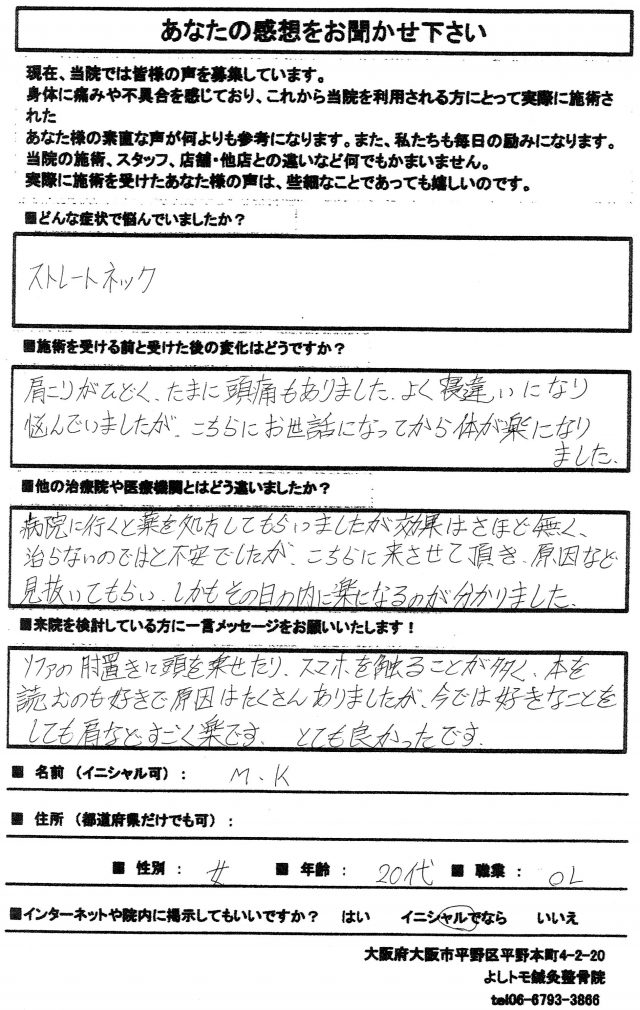 あなたの感想をお聞かせ下さい
現在、当院では皆様の声を募集しています。
身体に痛みや不具合を感じており、これから当院を利用される方にとって実際に施術さ
れた
あなた様の素直な声が何よりも参考になります。また、私たちも毎日の励みになります。
当院の施術、スタッフ、店舗・他店との違いなど何でもかまいません。
実際に施術を受けたあなた様の声は、些細なことであっても嬉しいのです。
■どんな症状で悩んでいましたか？
ストレートネック
■施術を受ける前と受けた後の変化はどうですか？
肩こりがひどく、たまに頭痛もありました。よく寝違いになり
悩んでいましたが、こちらにお世話になってから体が楽になり
ました。
■他の治療院や医療機関とはどう違いましたか？
病院に行くと薬を処方してもらいましたが効果はさほど無く、
治らないのではと不安でしたが、こちらに来させて頂き、原因など
見抜いてもらい、しかもその日の内に楽になるのが分かりました。
■来院を検討している方に一言メッセージをお願いいたします！
ソファの肘置きに頭を乗せたり、スマホを触ることが多く、本を
読むのも好きで原因はたくさんありましたが、今では好きなことを
しても肩などすごく楽です。 とても良かったです。
■ 名前（イニシャル可）： M.K
■ 住所（都道府県だけでも可）：
■ 性別： 女 ■ 年齢： 20代 ■ 職業： OL
■インターネットや院内に掲示してもいいですか？ はい イニシャルでなら いいえ
大阪府大阪市平野区平野本町4-2-20
よしトモ鍼灸整骨院
tel06-6793-3866